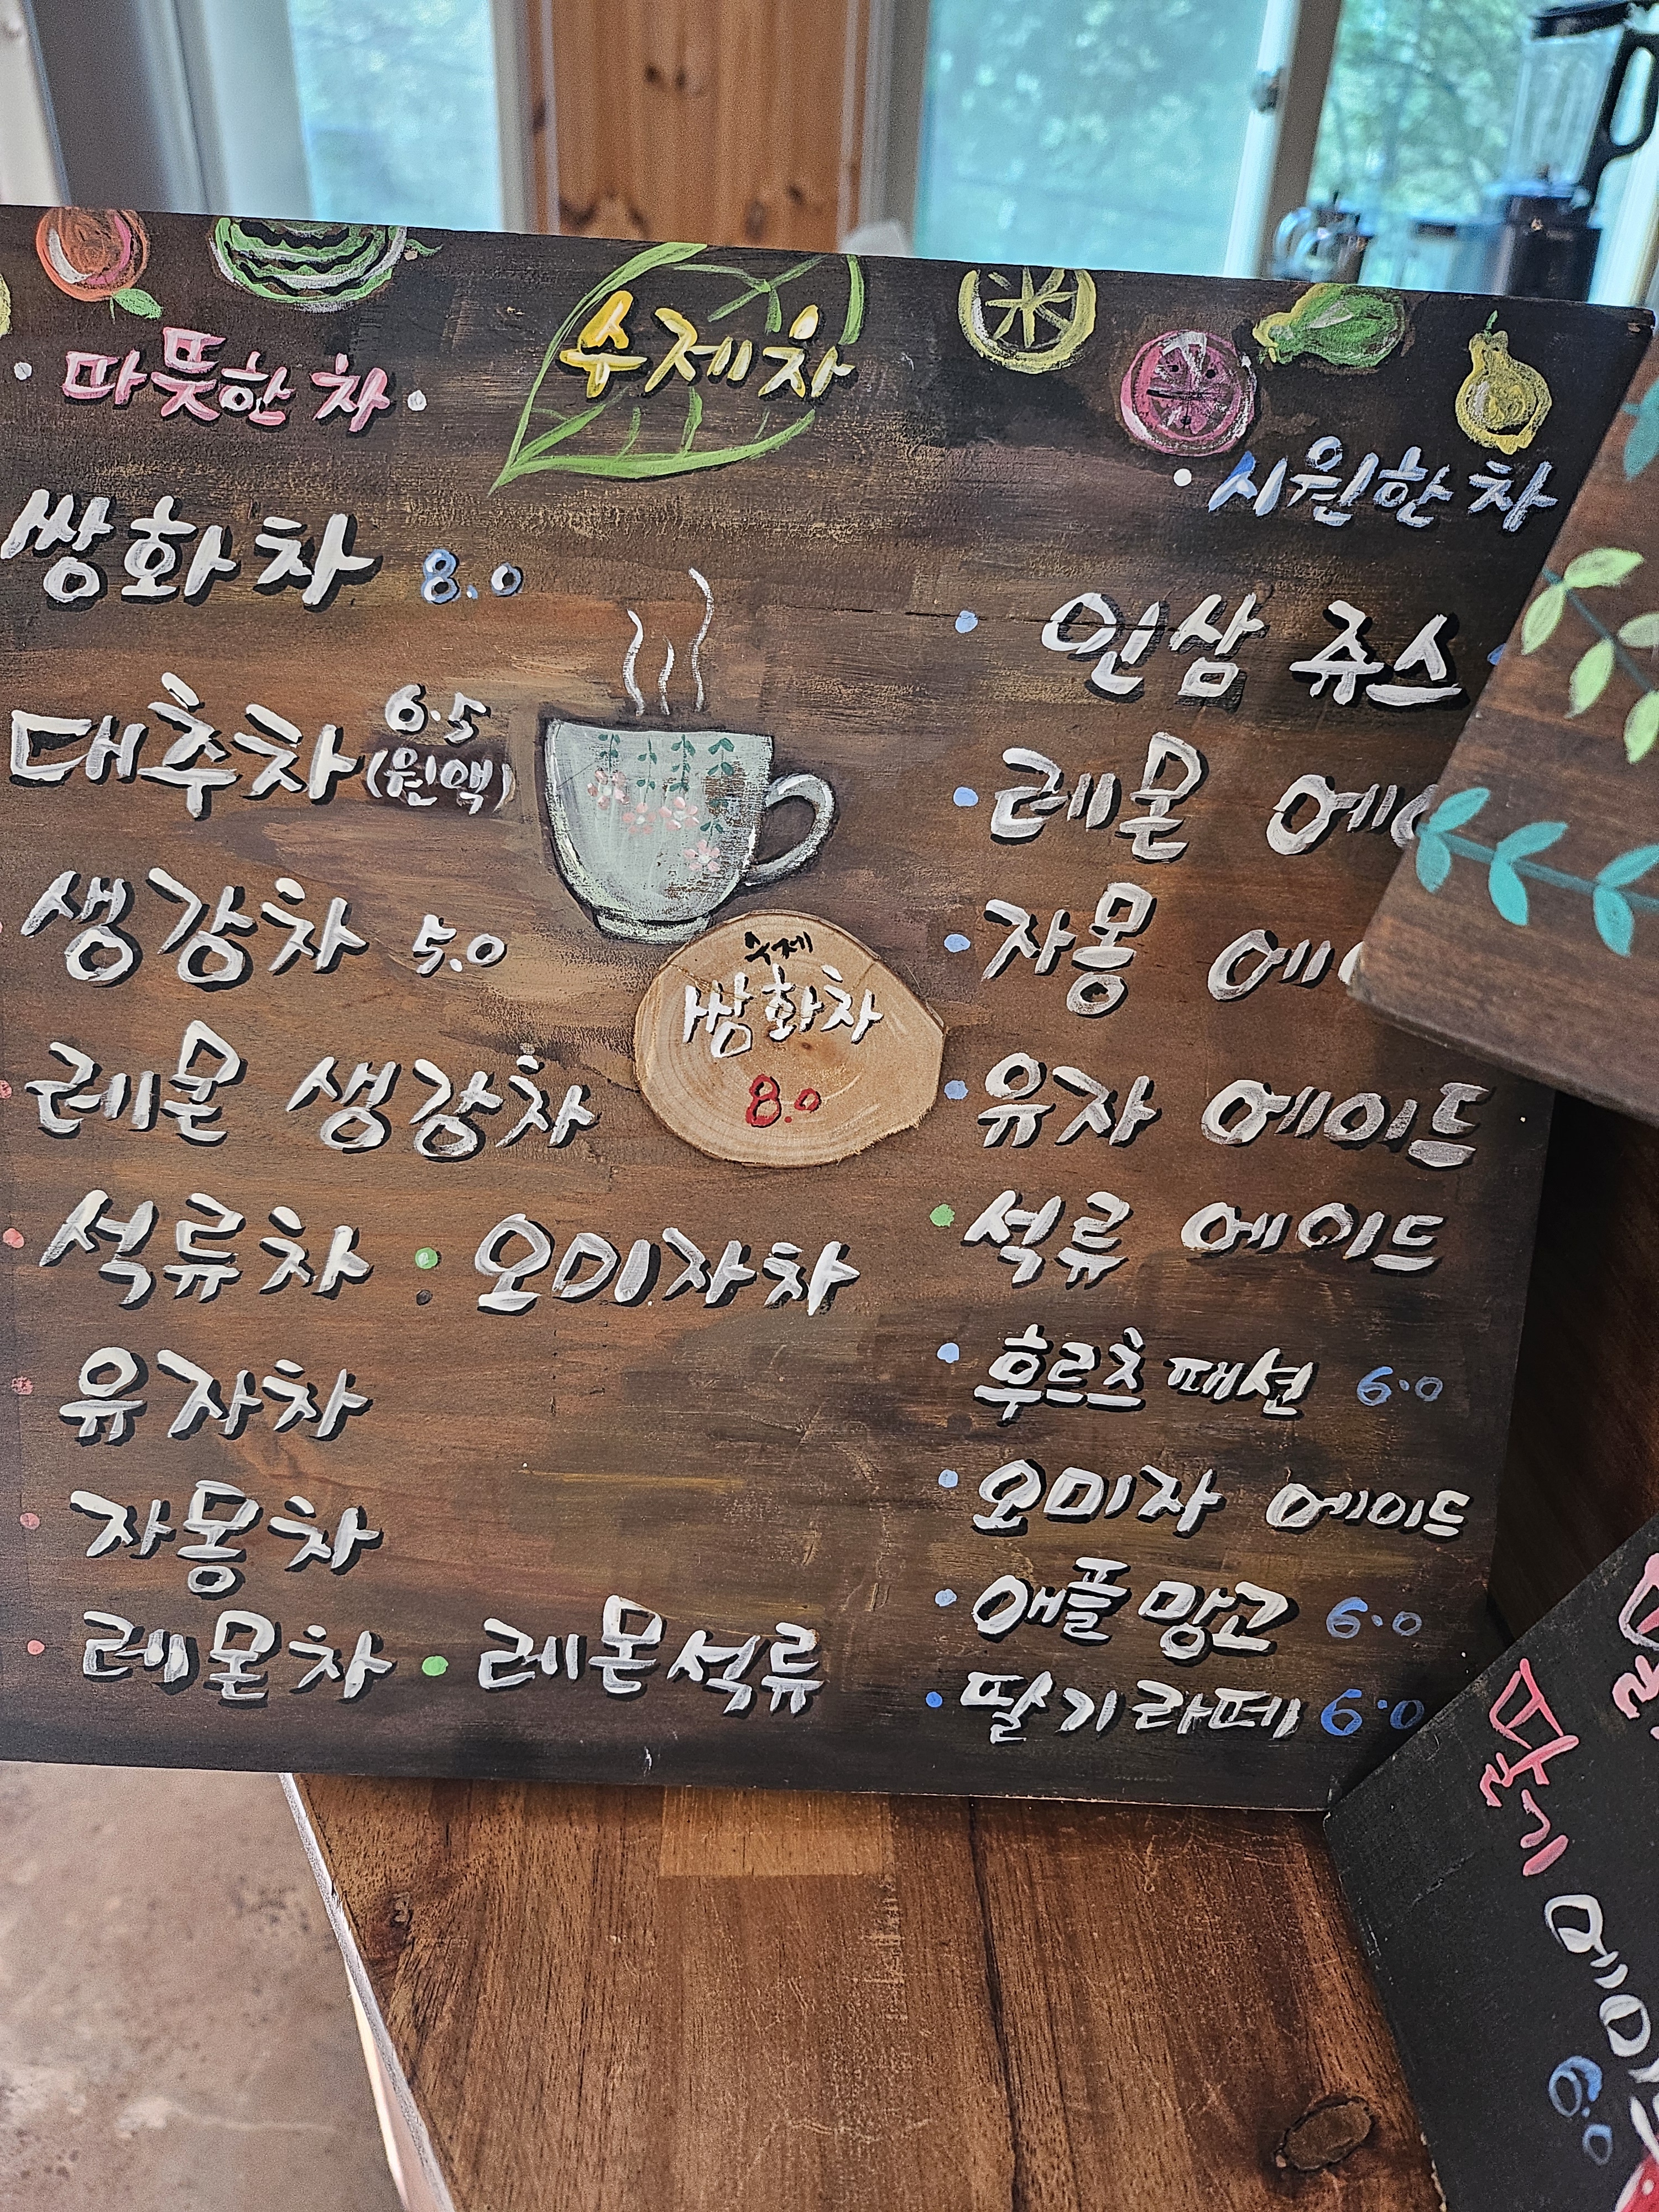 수제차
· 따뜻한 차 ·
쌍화차 8.0
대추차 6.5
(원액)
생강차 5.0
레몬 생강차
석류차 · 오미자차
유자차
자몽차
· 레몬차 · 레몬석류
수제
쌍화차
8.0
· 시원한 차
· 인삼 쥬스
· 레몬 에
· 자몽 에
· 유자 에이드
· 석류 에이드
· 후르츠패션 6.0
· 오미자 에이드
· 애플망고 6.0
· 딸기라떼 6.0
6.0